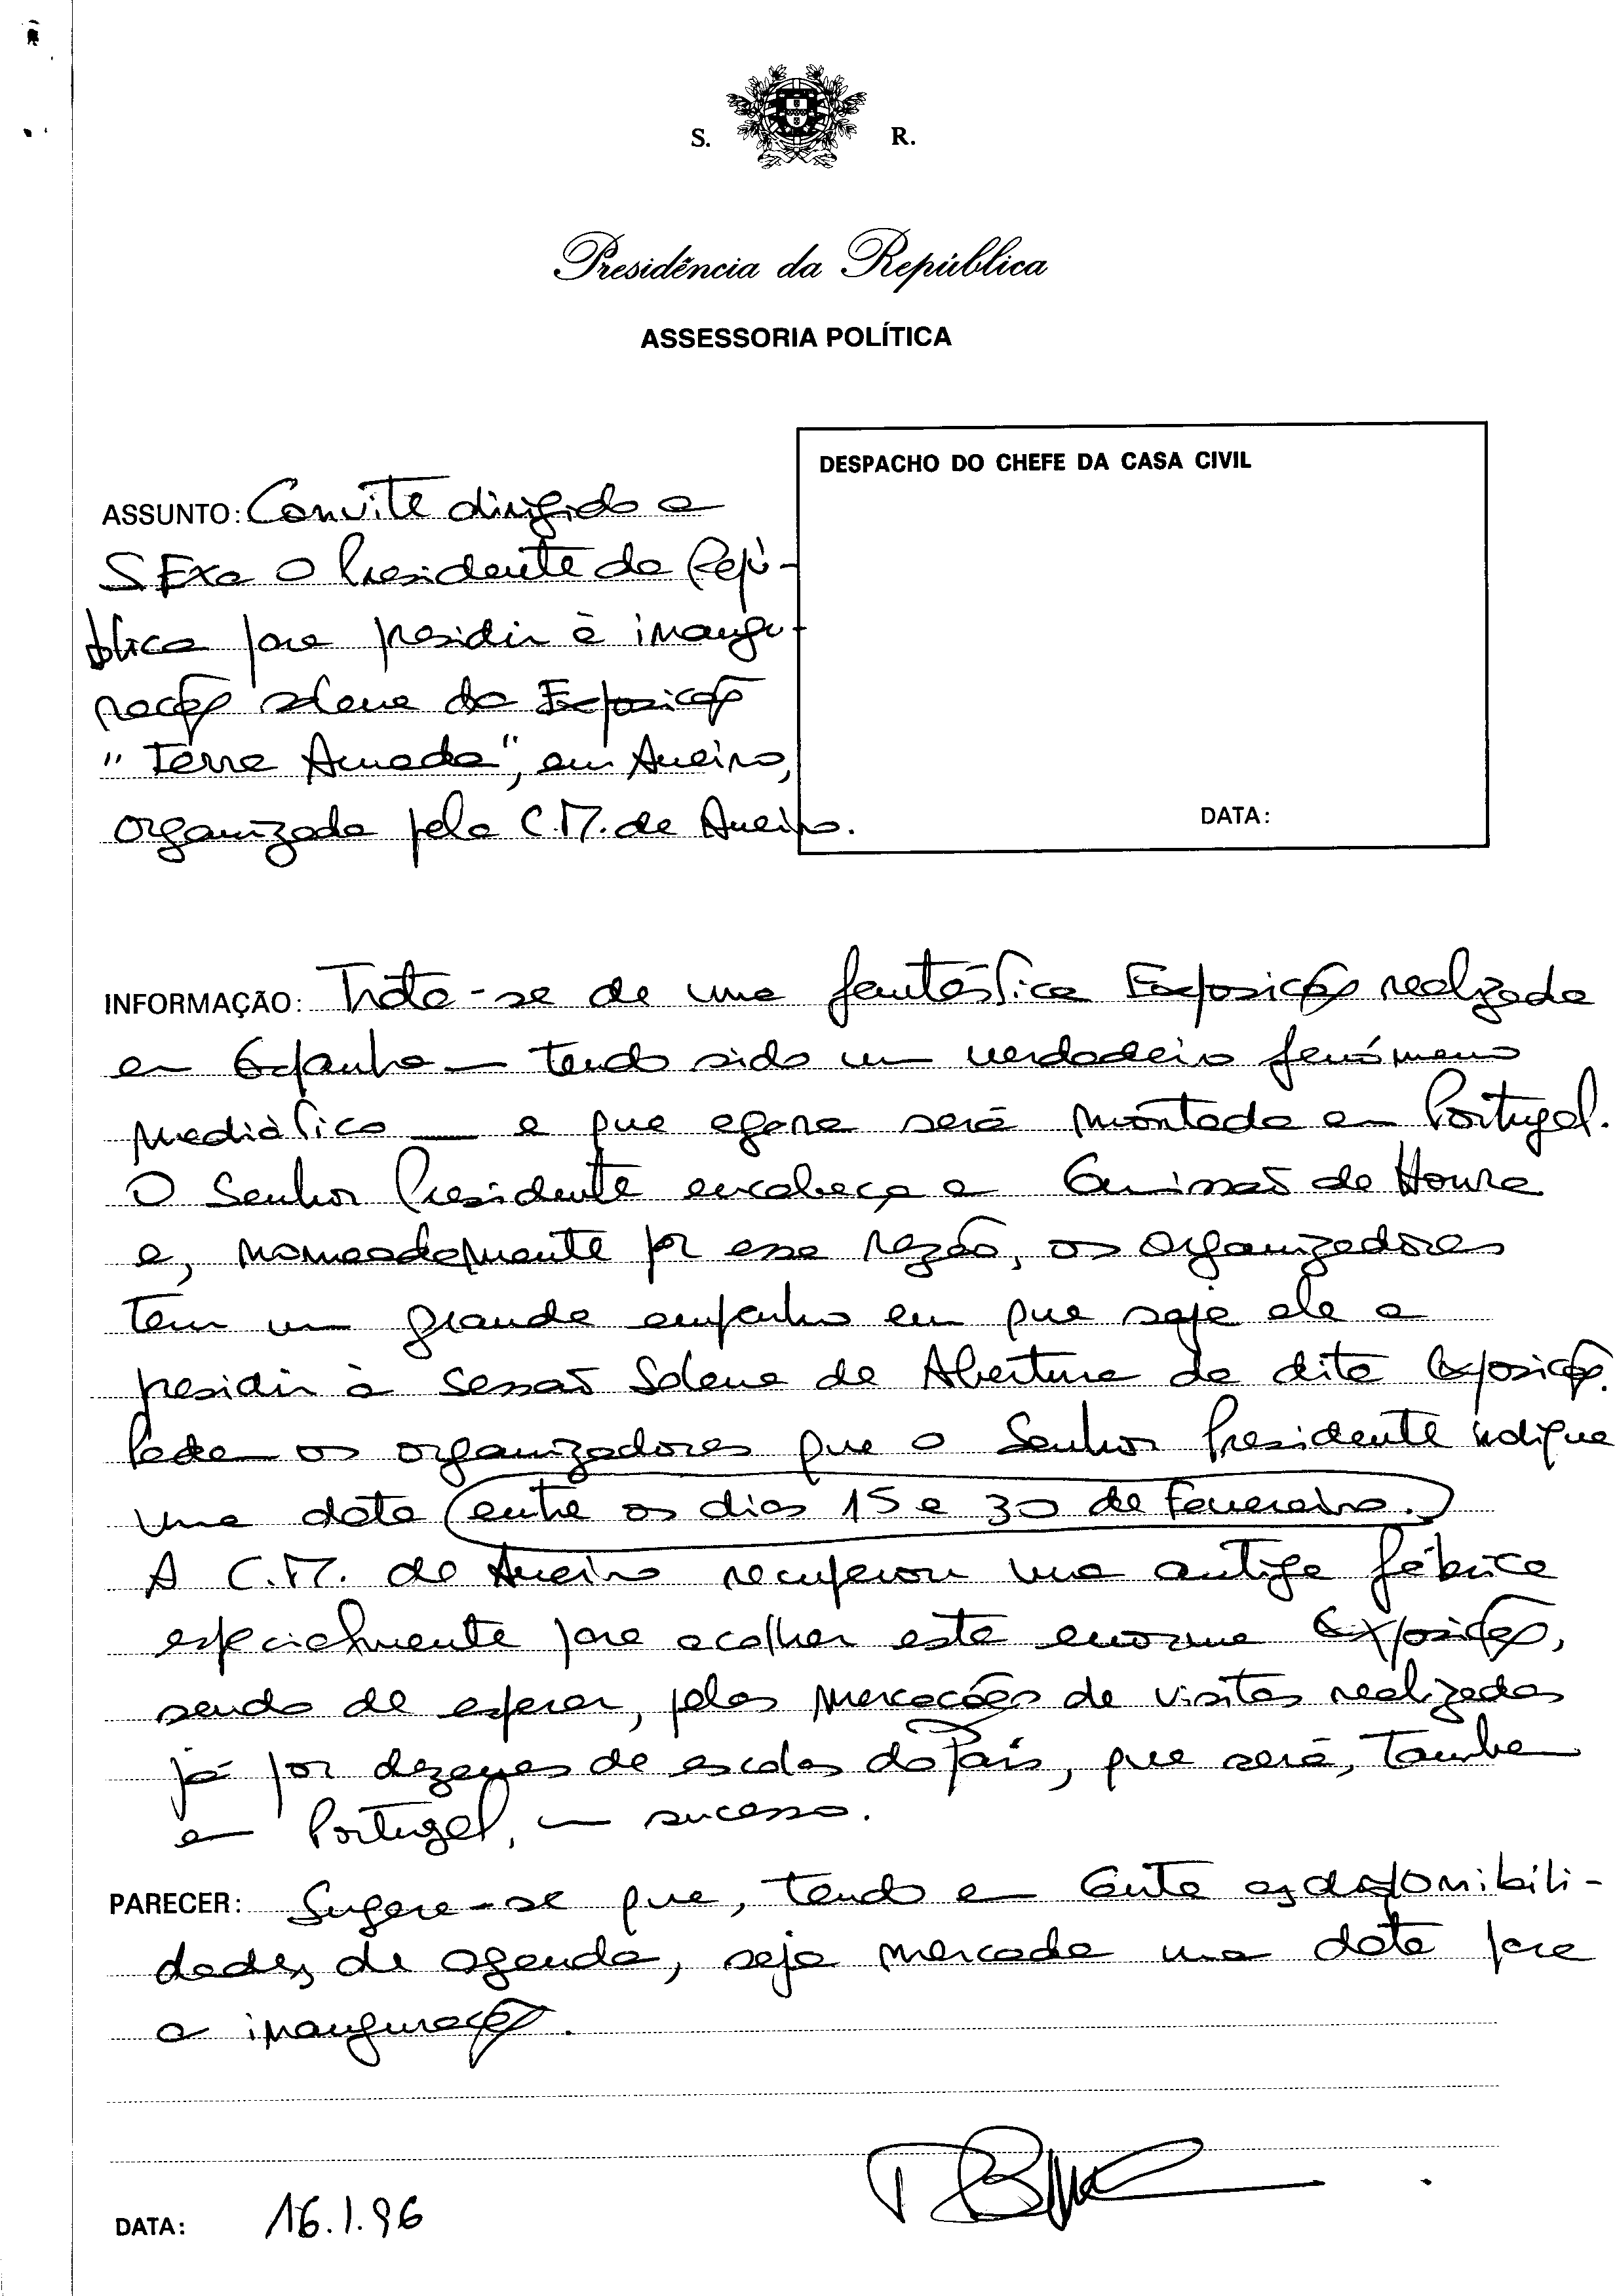 S. R.
Presidência da República
ASSESSORIA POLÍTICA
DESPACHO DO CHEFE DA CASA CIVIL
DATA:
ASSUNTO: Convite dirigido a
S Exa O Presidente da Repú-
blica para presidir à inaugu-
ração solene da Exposição
"Terra Amada", em Aveiro,
organizada pela C.M. de Aveiro.
INFORMAÇÃO: Trata-se de uma fantástica Exposição realizada
em Espanha — tendo sido um verdadeiro fenómeno
mediático — e que agora será montada em Portugal.
O Senhor Presidente encabeça a Comissão de Honra
e, nomeadamente por essa razão, os organizadores
têm um grande empenho em que seja ele a
presidir à Sessão Solene de Abertura da dita Exposição.
Pedem os organizadores que o Senhor Presidente indique
uma data entre os dias 15 e 30 de Fevereiro.
A C.M. de Aveiro recuperou uma antiga fábrica
especialmente para acolher esta enorme Exposição,
sendo de esperar, pelas marcações de visitas realizadas
já por dezenas de escolas do País, que será, também
em Portugal, um sucesso.
PARECER: Sugere-se que, tendo em conta as disponibili-
dades de agenda, seja marcada uma data para
a inauguração.
DATA: 16.1.96